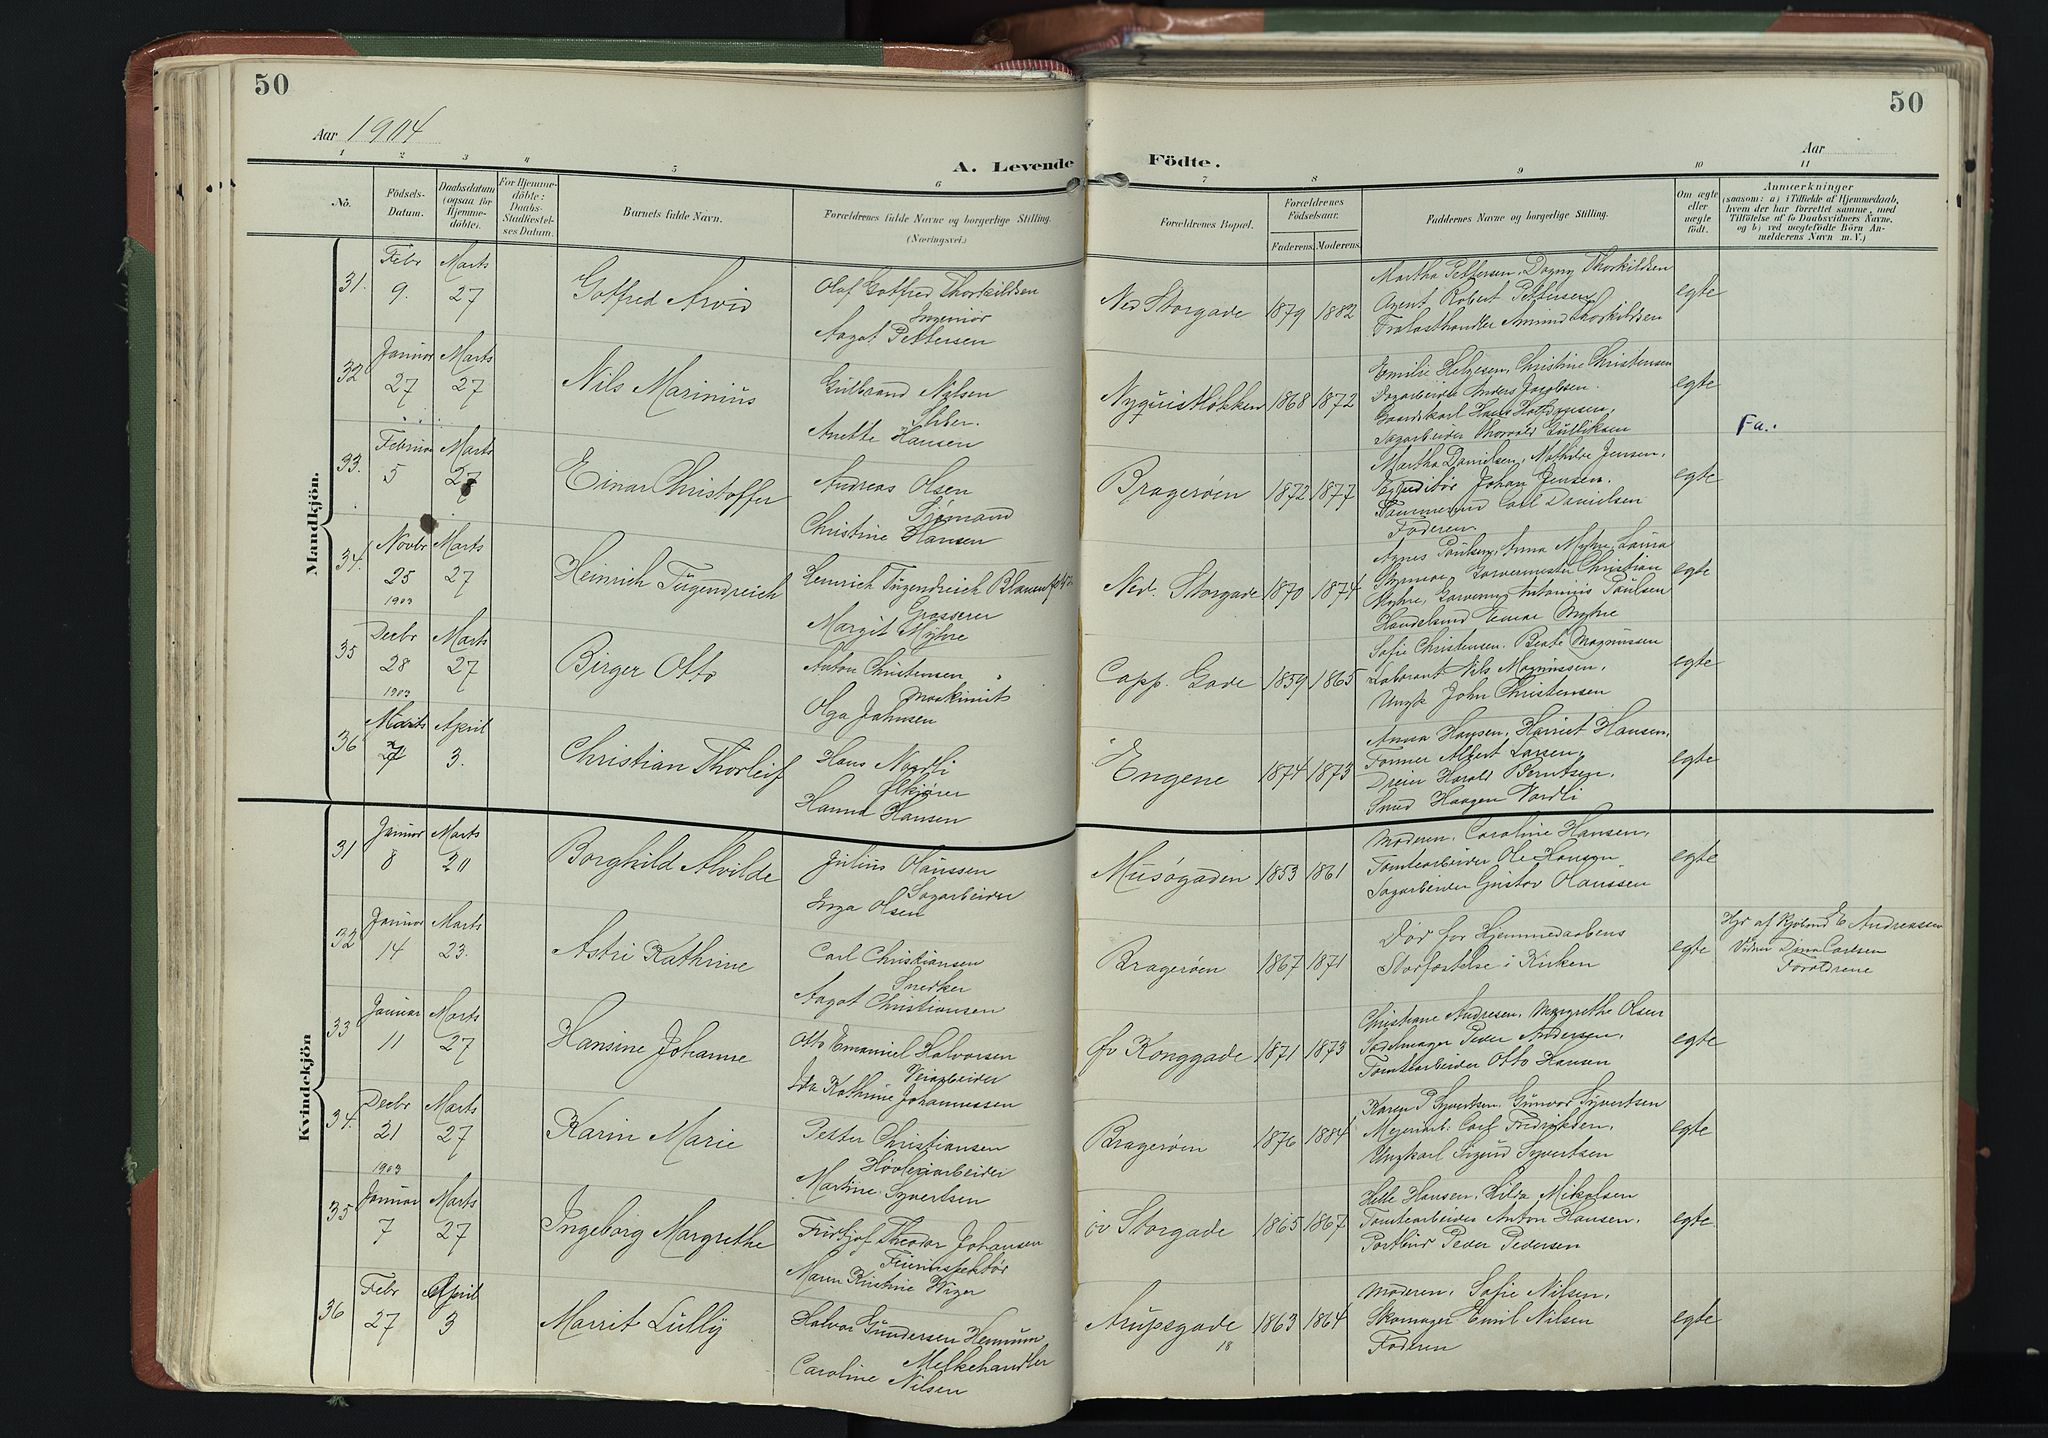 50
50
Aar 1904
Aar
A. Levende
Födte.
1 2 3 4 5 6 7 8 9 10 11
No.
Födsels-Datum.
Daabsdatum (ogsaa for Hjemme-döbte).
For Hjemme-döbte: Daabs-Stadfæstel-ses Datum.
Barnets fulde Navn.
Forældrenes fulde Navne og borgerlige Stilling.
(Næringsvei.)
Forældrenes Bopæl.
Forældrenes Födselsaar.
Faderens. Moderens.
Faddernes Navne og borgerlige Stilling.
Om ægte eller uægte födt.
Anmærkninger
(saasom: a) i Tilfælde af Hjemmedaab,
hvem der har forrettet samme, med
Tilföielse af to Daabsvidners Navne,
og b) ved uægtefödte Börn An-
melderens Navn m. V.)
Mandkjön.
31. Febr 9. Marts 27 Gotfred Arvid
Olaf Gotfred Thorkildsen
Ingeniør
Aagot Pettersen
Ned Storgade 1879 1882
Martha Pettersen, Dagny Thorkildsen
Agent Robert Pettersen
Trælasthandler Amund Thorkildsen
egte
32 Januar 27 Marts 27 Nils Marinius
Gulbrand Nilsen
Sliber.
Anette Hansen
Nyquistløkken 1868 1872
Emilie Helgesen, Christine Christensen
Sagarbeide Anders Jacobsen.
Gaardskarl Hans Halfdansen,
Sagarbeider Thorvald Gulliksen
egte
Fa.
33. Februar 5 Marts 27 Einar Christoffer
Andreas Olsen
Sjømand
Christine Hansen
Bragerøen 1872 1877
Martha Danielsen, Mathilde Jensen,
Expeditør Johan Jensen.
Tømmermd Carl Danielsen
Faderen.
egte
34. Novbr 25 1903 Marts 27 Heinrich Tügendreich
Heinrich Tügendreich
Grosserer
Margit Myhre
Ned. Storgade 1870 1874
Agnes Paulsen, Anna Myhre, Laura
Garvermester Christian
Myhre, Antonius Paulsen
Handelsmd Einar Myhre
egte
35 Decbr 28 1903 Marts 27 Birger Otto
Anton Christensen
Maskinist
Olga Johnsen
Capp. Gade 1859 1865
Sofie Christensen. Beate Magnussen
Laborant Nils Magnussen,
Ungk John Christensen
egte
36 Marts April 3. Christian Thorleif
Hans Nordli
Hanna Hansen
Engene 1874 1873
Anna Hansen, Harriet Hansen,
Former Albert Larsen,
Dreier Harald Berntsen,
Smed Haagen Nordli
egte
Kvindekjön
31 Januar 8 Marts 20 Borghild Alvilde
Julius Olaussen
Sagarbeider
Inga Olsen
Musøgaden 1853 1861
Moderen, Caroline Hansen,
Tomtearbeider Ole Hansen
Sagarbeider Gustav Olaussen
egte
32 Januar 14 Marts 23. Astri Kathrine
Carl Christiansen
Snedker
Aagot Christiansen
Bragerøen 1867 1871
Død før Hjemmedaabens
Stadfæstelse i Kirken
egte
Hjd af E Andreassen
Vidner Dina Carlsen
Forældrene
33 Januar 11 Marts 27 Hansine Johanne
Otto Emanuel Halvorsen
Veiarbeider
Ida Kathrine Johannessen
øv Konggade 1871 1873
Christiane Andresen, Margrethe Olsen
Sadelmager Peder Andersen,
Tomtearbeider Otto Hansen
egte
34. Decbr 21 1903 Marts 27 Karin Marie
Petter Christiansen
Høvleriarbeider
Martine Syvertsen
Bragerøen 1876 1884
Karen P Syvertsen, Gunvor Syvertsen
Meieriarb. Carl Fredriksen,
Ungkarl Sigurd Syvertsen
egte
35 Januar 7 Marts 27 Ingeborg Margrethe
Fridtjof Theodor Johansen
Feierinspektør
Maren Kristine Wiger
øv Storgade 1865 1867
Helle Hansen, Hilda Mikalsen
Tomtearbeider Anton Hansen,
Portbud Peder Pedersen
egte
36 Febr 27 April 3 Marrit Lully
Halvor Gundersen Hennum
Melkehandler
Caroline Nilsen
Arupsgade 18 1863 1864
Moderen, Sofie Nilsen,
Skomager Emil Nilsen
Faderen
egte